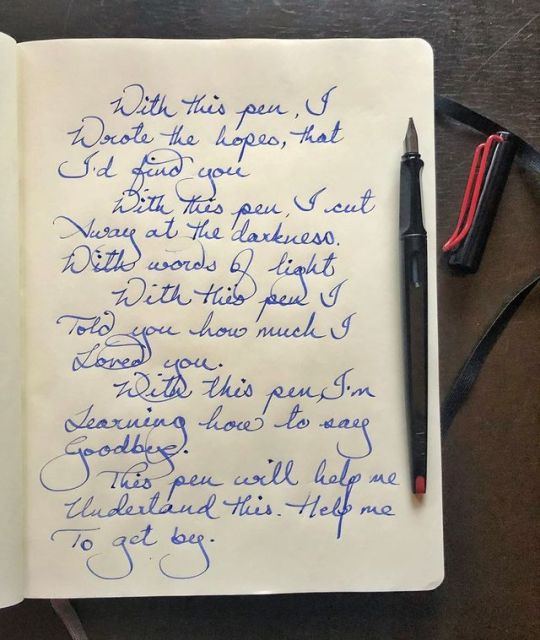 With this pen, I
Wrote the hopes, that
I'd find you
With this pen, I cut
Away at the darkness.
With words of light
With this pen I
Told you how much I
Loved you.
With this pen, I'm
Learning how to say
Goodbye.
This pen will help me
Understand this. Help me
To get by.